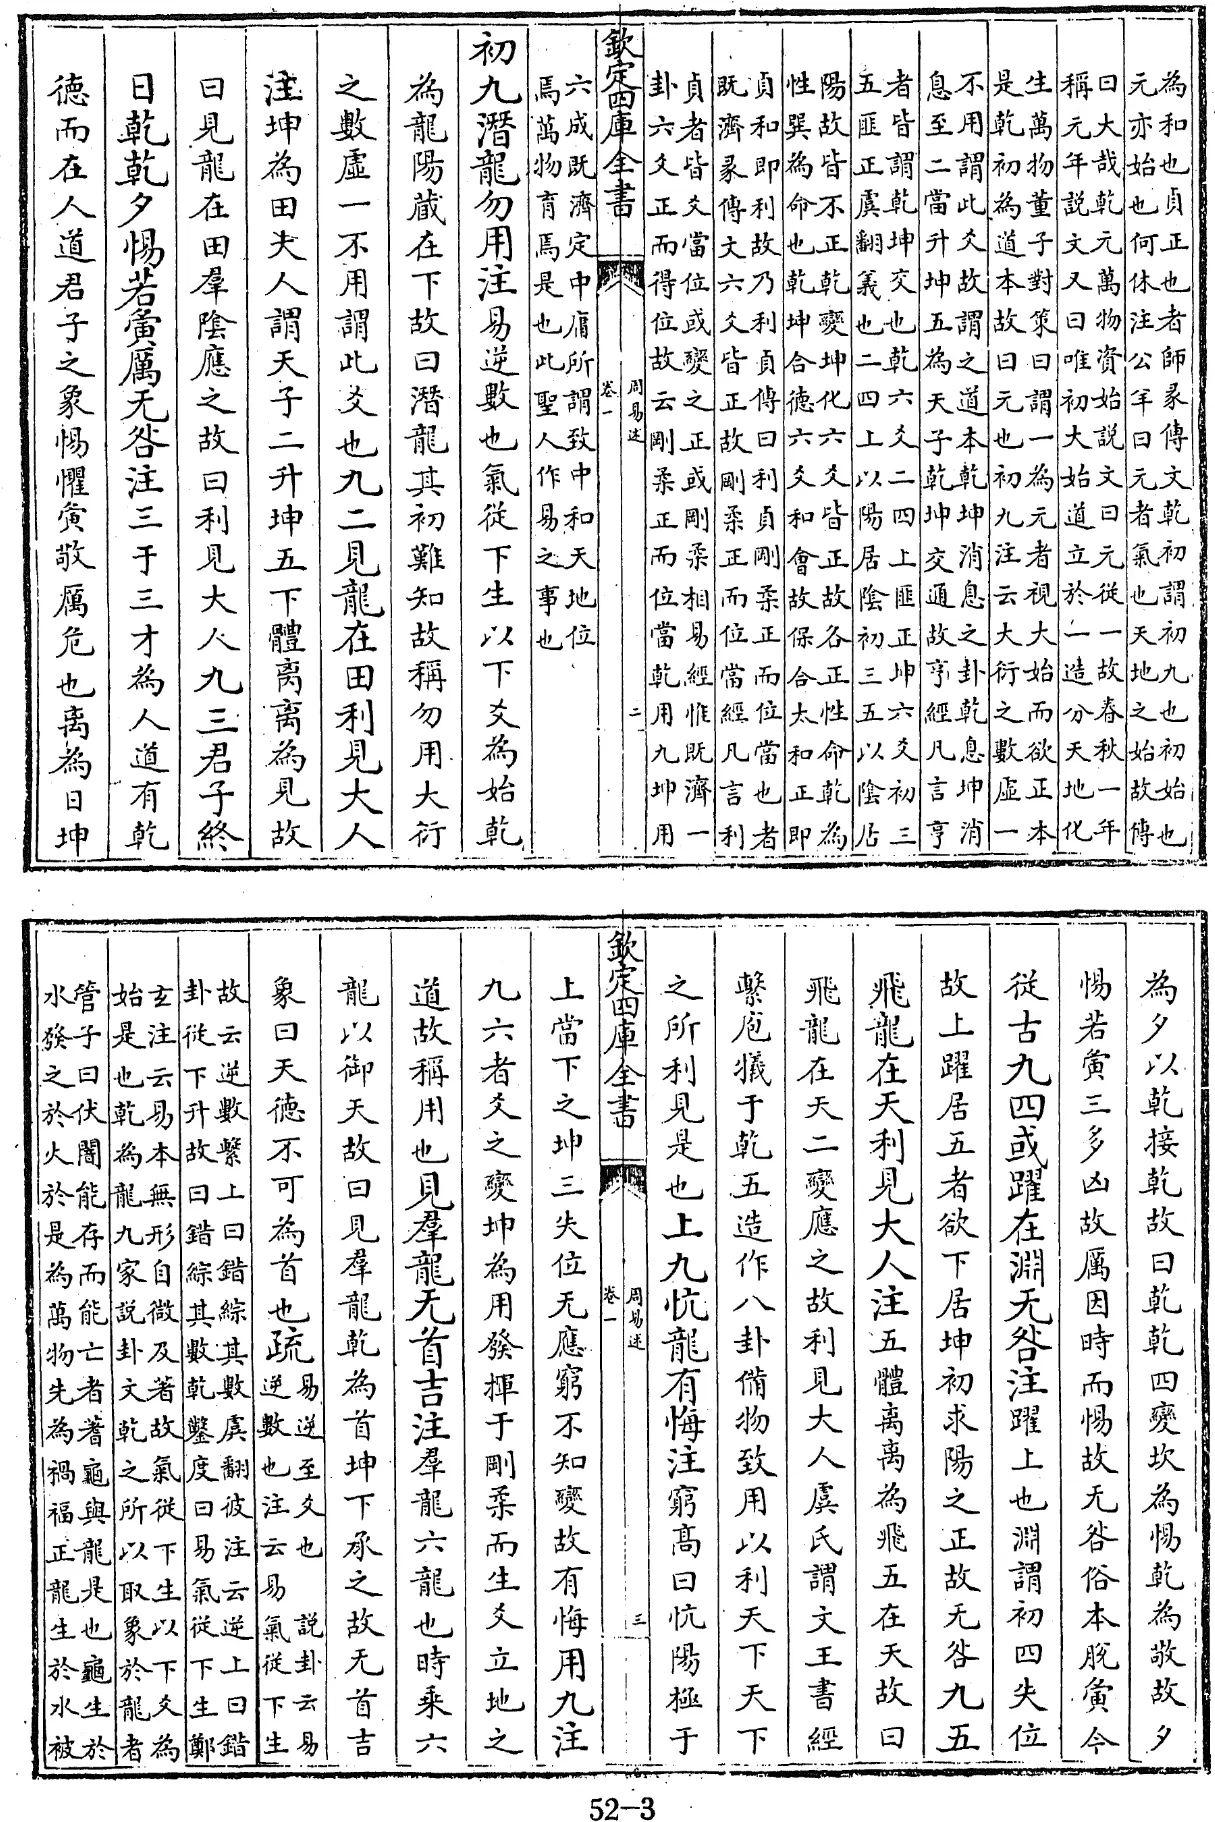 為和也貞正也者師彖傳文乾初謂初九也初始也
元亦始也何休注公羊曰元者氣也天地之始故傳
曰大哉乾元萬物資始説文曰元從一故春秋一年
稱元年説文又曰唯初大始道立於一造分天地化
生萬物董子對策曰謂一為元者視大始而欲正本
是乾初為道本故曰元也初九注云大衍之數虛一
不用謂此爻故謂之道本乾坤消息之卦乾息坤消
息至二當升坤五為天子乾坤交通故亨經凡言亨
者皆謂乾坤交也乾六爻二四上匪正坤六爻初三
五匪正虞翻義也二四上以陽居陰初三五以陰居
陽故皆不正乾變坤化六爻皆正故各正性命乾為
性巽為命也乾坤合德六爻和會故保合太和正即
貞和即利故乃利貞傳曰利貞剛柔正而位當也者
既濟彖傳文六爻皆正故剛柔正而位當經凡言利
貞者皆爻當位或變之正或剛柔相易經惟既濟一
卦六爻正而得位故云剛柔正而位當乾用九坤用
欽定四庫全書
周易述
卷一
二
六成既濟定中庸所謂致中和天地位
焉萬物育焉是也此聖人作易之事也
初九潛龍勿用注易逆數也氣從下生以下爻為始乾
為龍陽藏在下故曰潛龍其初難知故稱勿用大衍
之數虛一不用謂此爻也九二見龍在田利見大人
注坤為田大人謂天子二升坤五下體离离為見故
曰見龍在田羣陰應之故曰利見大人九三君子終
日乾乾夕惕若夤厲无咎注三于三才為人道有乾
德而在人道君子之象惕懼夤敬厲危也离為日坤
為夕以乾接乾故曰乾乾四變坎為惕乾為敬故夕
惕若夤三多凶故厲因時而惕故无咎俗本脫夤今
從古九四或躍在淵无咎注躍上也淵謂初四失位
故上躍居五者欲下居坤初求陽之正故无咎九五
飛龍在天利見大人注五體离离為飛五在天故曰
飛龍在天二變應之故利見大人虞氏謂文王書經
繫庖犧于乾五造作八卦備物致用以利天下天下
之所利見是也上九忼龍有悔注窮高曰忼陽極于
欽定四庫全書
周易述
卷一
三
上當下之坤三失位无應窮不知變故有悔用九注
九六者爻之變坤為用發揮于剛柔而生爻立地之
道故稱用也見羣龍无首吉注羣龍六龍也時乘六
龍以御天故曰見羣龍乾為首坤下承之故无首吉
象曰天德不可為首也疏
易逆至爻也 説卦云易
逆數也注云易氣從下生
故云逆數繫上曰錯綜其數虞翻彼注云逆上曰錯
卦從下升故曰錯綜其數乾鑿度曰易氣從下生鄭
玄注云易本無形自微及著故氣從下生以下爻為
始是也乾為龍九家説卦文乾之所以取象於龍者
管子曰伏闇能存而能亡者蓍龜與龍是也龜生於
水發之於火於是為萬物先為禍福正龍生於水被
52-3